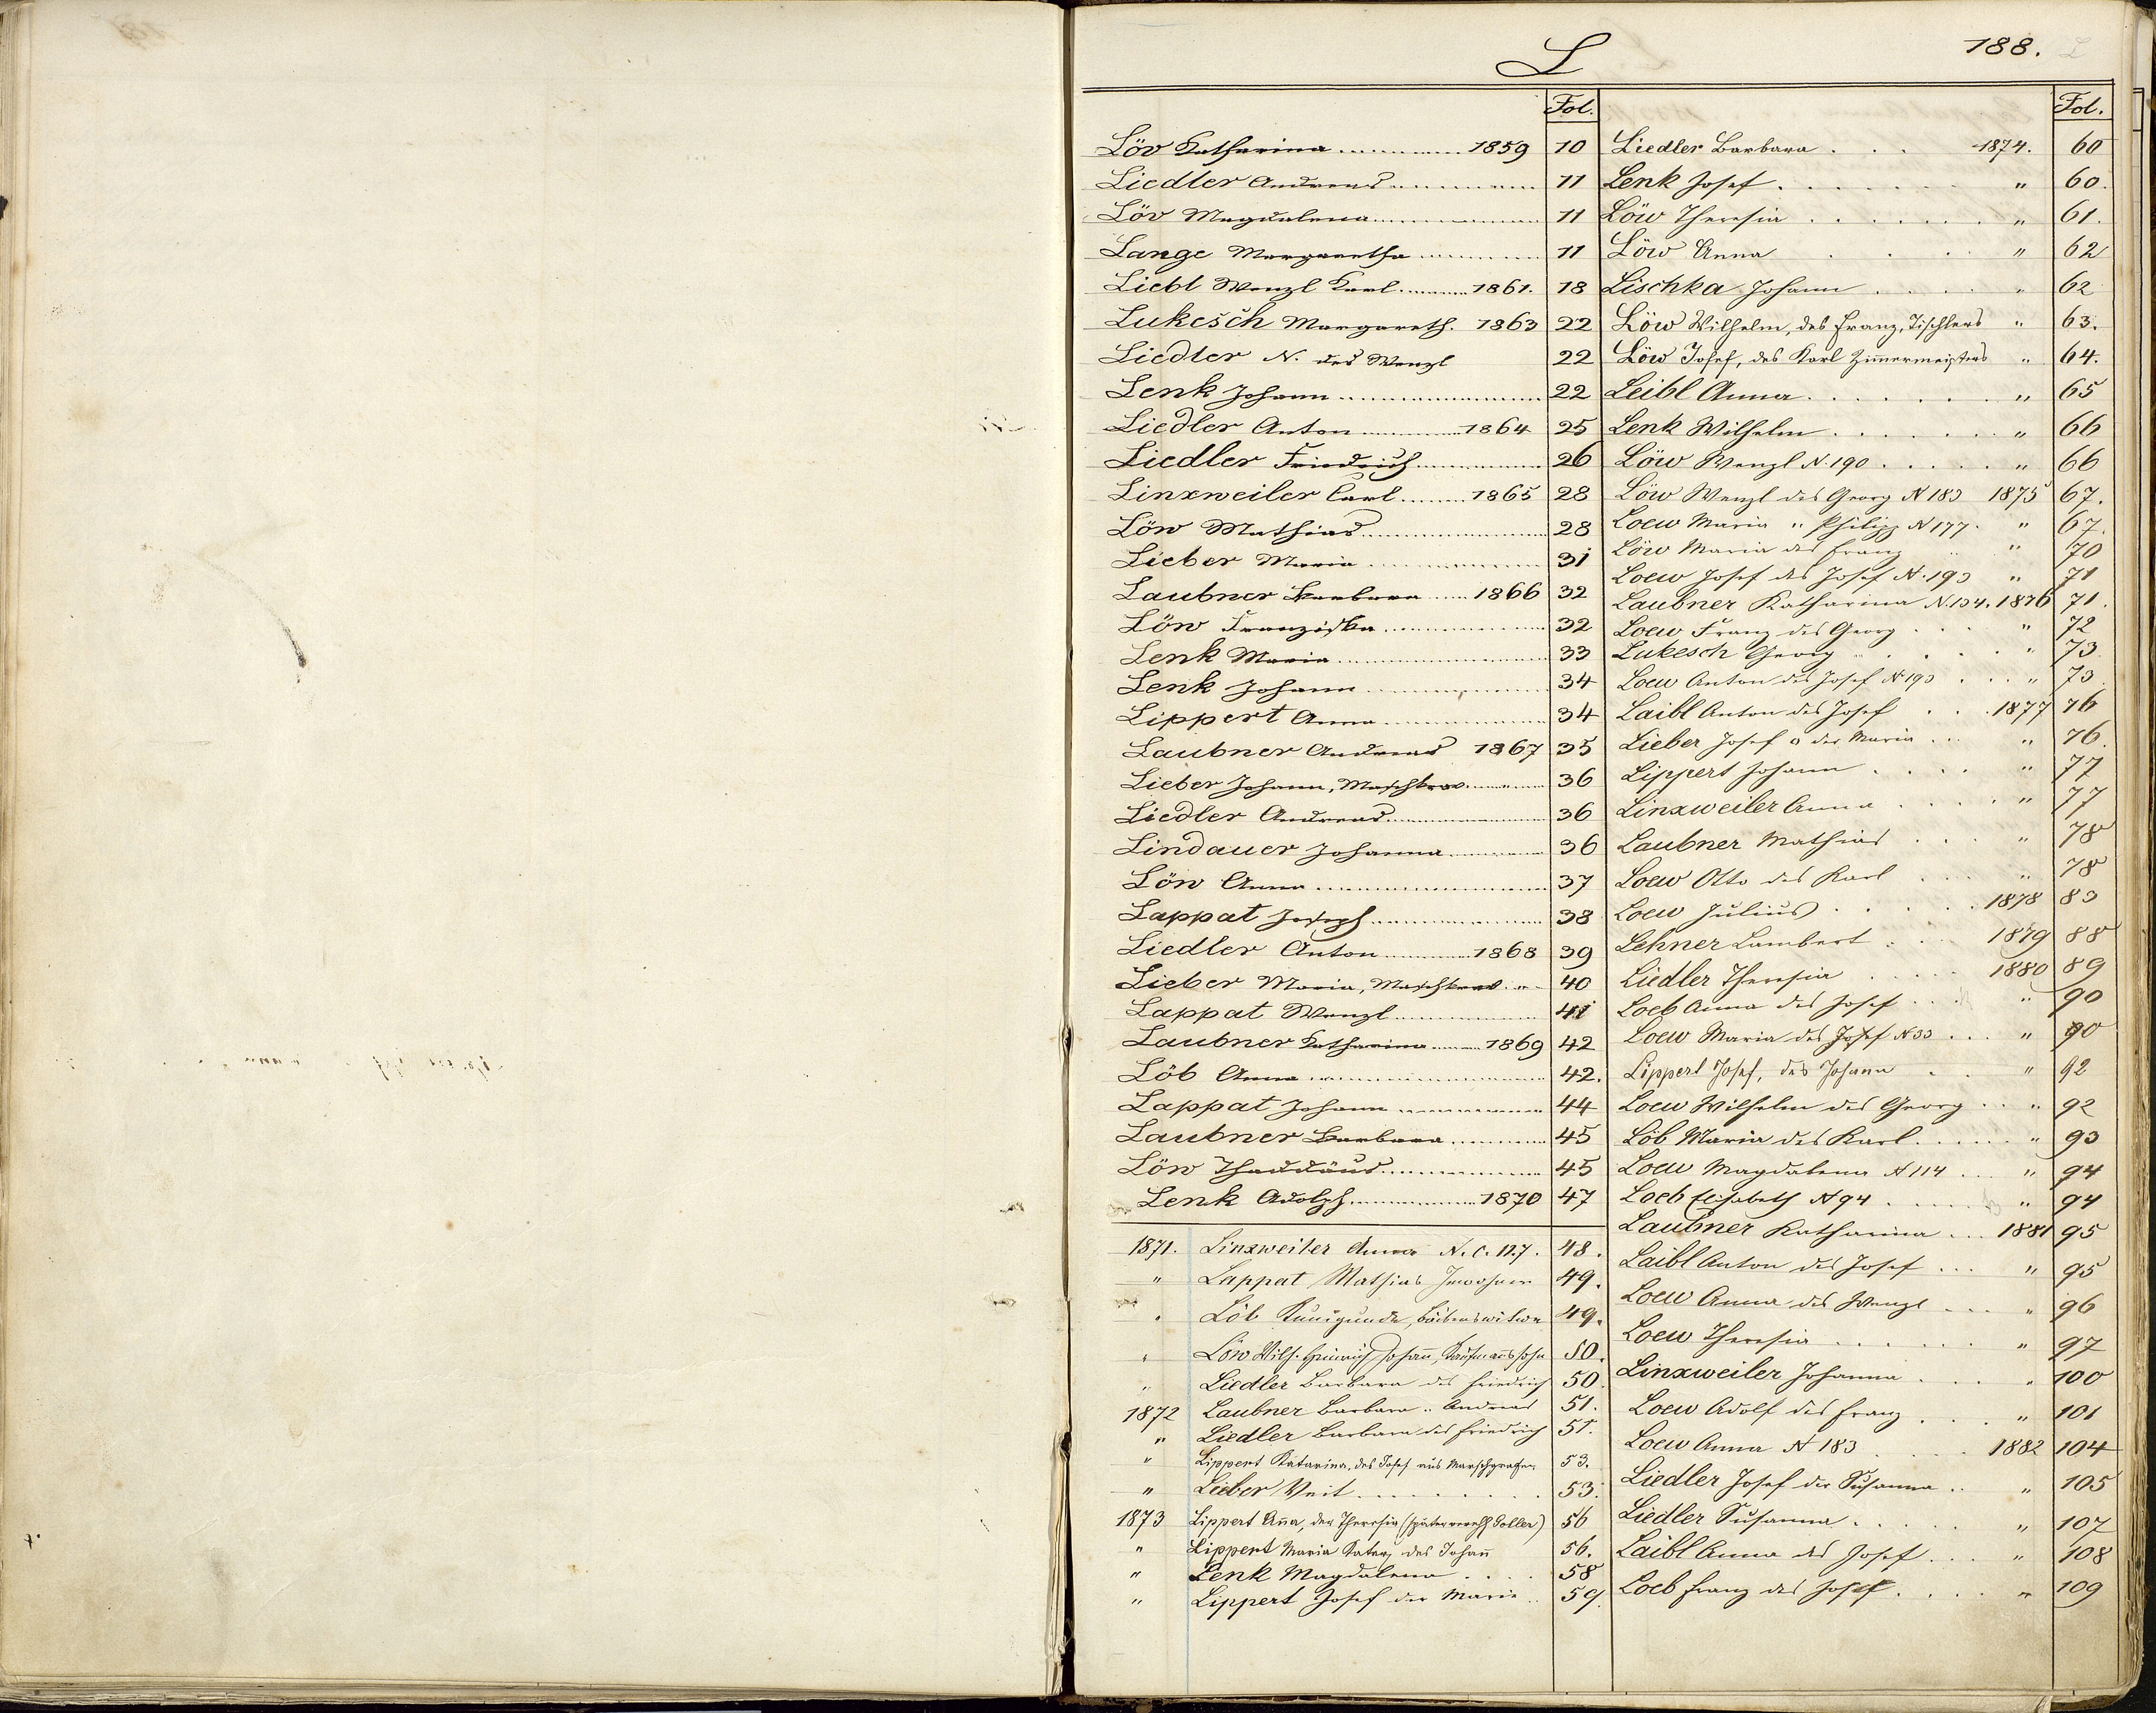 188.
L
Fol.
Löv Katharina 1859 10
Liedler Andreas 11
Löv Magdalena 11
Lange Margaretha 11
Liebl Wenzl Karl 1861. 18
Lukesch Margareth. 1863 22
Liedler N. des Wenzl 22
Lenk Johann 22
Liedler Anton 1864 25
Liedler Friedrich 26
Linxweiler Carl 1865 28
Löw Mathias 28
Lieber Maria 31
Laubner Barbara 1866 32
Löw Franziska 32
Lenk Maria 33
Lenk Johann 34
Lippert Anna 34
Laubner Andreas 1867 35
Lieber Johann, Maschkrov " 36
Liedler Andreas 36
Lindauer Johanna 36
Löw Anna 37
Lappat Joseph 38
Liedler Anton 1868 39
Lieber Maria, " 40
Lappat Wenzl 41
Laubner Katharina 1869 42
Löb Anna 42.
Lappat Johann 44
Laubner Barbara 45
Löw Thaddäus 45
Lenk Adolph 1870 47
1871. Linxweiler Anna N. C. 127. 48.
" Lappat Mathias Inwohner 49.
" Löb Kunigunda, 49.
" Löw Wilh. Heinrich Johann, Kaufmanssohn 50.
" Liedler Barbara des Friedrich 50.
1872 Laubner Barbara " Andreas 51.
" Liedler Barbara des Friedrich 51.
" Lippert Katarina, des Josef aus Maschgrafen 53.
" Lieber Veit 53.
1873 Lippert Anna, der Theresia (später verehl. Goller) 56
" Lippert Maria Kater, des Johann 56.
" Lenk Magdalena 58
" Lippert Josef der Maria 59.
Fol.
Liedler Barbara 1874. 60
Lenk Josef " 60.
Löw Theresia " 61.
Löw Anna " 62
Lischka Johann " 62
Löw Wilhelm, des Franz, Tischlers " 63.
Löw Josef, des Karl Zimmermeisters " 64.
Leibl Anna " 65
Lenk Wilhelm " 66
Löw Wenzl N. 190 " 66
Löw Wenzl des Georg N 183 1875 67.
Loew Maria " Philipp N 177. " 67.
Löw Maria des Franz " 70
Loew Josef des Josef N. 193 " 71
Laubner Katharina N. 134. 1876 71.
Loew Franz des Georg " 72
Lukesch Georg " 73.
Loew Anton des Josef N 193 " 73.
Laibl Anton des Josef 1877 76
Lieber Josef der Maria " 76.
Lippert Johann " 77
Linxweiler Anna " 77
Laubner Mathias " 78
Loew Otto des Karl " 78
Loew Julius 1878 83
Lehner Lambert 1879 88
Liedler Theresia 1880 89
Loeb Anna des Josef " 90
Loew Maria des Josef N 33 " 90
Lippert Josef, des Johann " 92
Loew Wilhelm des Georg " 92
Löb Maria des Karl " 93
Loew Magdalena N 114 " 94
Loeb Elisabeth N 94 " 94
Laubner Katharina 1881 95
Laibl Anton des Josef " 95
Loew Anna des Wenzl " 96
Loew Theresia " 97
Linxweiler Johanna " 100
Loew Adolf des Franz " 101
Loew Anna N 183 1882 104
Liedler Josef der Susanna " 105
Liedler Susanna " 107
Laibl Anna des Josef " 108
Loeb Franz des Josef " 109